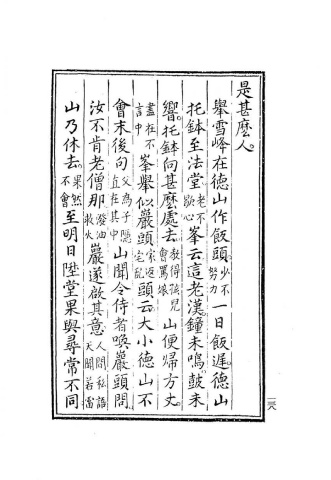 是甚麼人。
舉雪峰在德山作飯頭。少不努力一日飯遲。德山
托鉢至法堂。老不歇心峯云這老漢。鐘未鳴鼓未
響。托鉢向甚麼處去。教得孩兒會罵娘山便歸方丈。
盡在不言中峯舉似巖頭。家返宅亂頭云大小德山不
會末後句。父為子隱直在其中山聞令侍者喚巖頭問
汝不肯老僧那。潑油救火巖遂啟其意。人間私語天聞若雷
山乃休去。果然不會至明日陞堂果與尋常不同
一三八